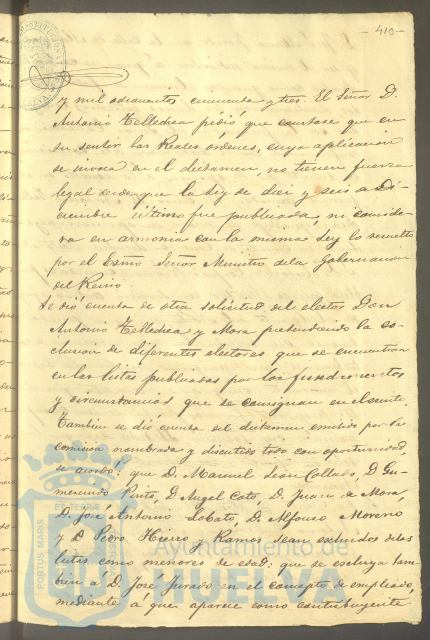 -410-
y mil ochocientos cincuenta y tres. El Señor D.
Antonio Tellechea pidió que constase que en
su sentir las Reales órdenes, cuya aplicacion
se invoca en el dictamen, no tienen fuerza
legal desde que la ley de diez y seis de Di-
ciembre último fue publicada, ni conside-
ra en armonia con la misma Ley lo resuelto
por el Exmo Señor Ministro de la Gobernacion
del Reino.
Se dió cuenta de otra solicitud del elector Don
Antonio Tellechea y Mora pretendiendo la es-
clusion de diferentes electores que se encuentran
en las listas publicadas por los fundamentos
y circunstancias que se consignan en el escrito.
Tambien se dió cuenta del dictamen emitido por la
comision nombrada y discutido todo con oportunidad,
se acordó: que D. Manuel Leon Collado, D. Gu-
mersindo Pinto, D. Angel Coto, D. Juan de Mora,
D. José Antonio Lobato, D. Alfonso Moreno
y D. Pedro Hierro y Ramos sean excluidos de las
listas como menores de edad: que se escluya tam-
bien á D. José Jurado en el concepto de empleado,
mediante á que aparece como contribuyente
Ayuntamiento de
HUELVA
PORTUS MARIS